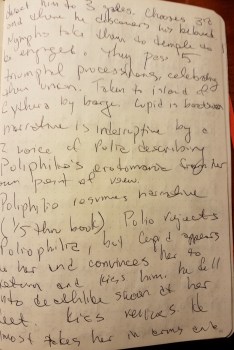 him to 3 gates. Chooses 3rd
and where he discovers his beloved
Nymphs take them to temple to
be engaged. They pass 5
triumphal processions, celebrating
their union. Taken to island of
Cythera by barge. Cupid is boatswain
narrative is interruptive by a
2 voice of Polia describing
Poliphilo's erotomania from her
own point of view.
Poliphilio resumes narrative
(1/5 thru book), Polio rejects
Poliophilio, but Cupid appears
to her and convinces her to
return and kiss him. he fell
into deathlike swoon at her
feet. Kiss revives he
takes her in arms